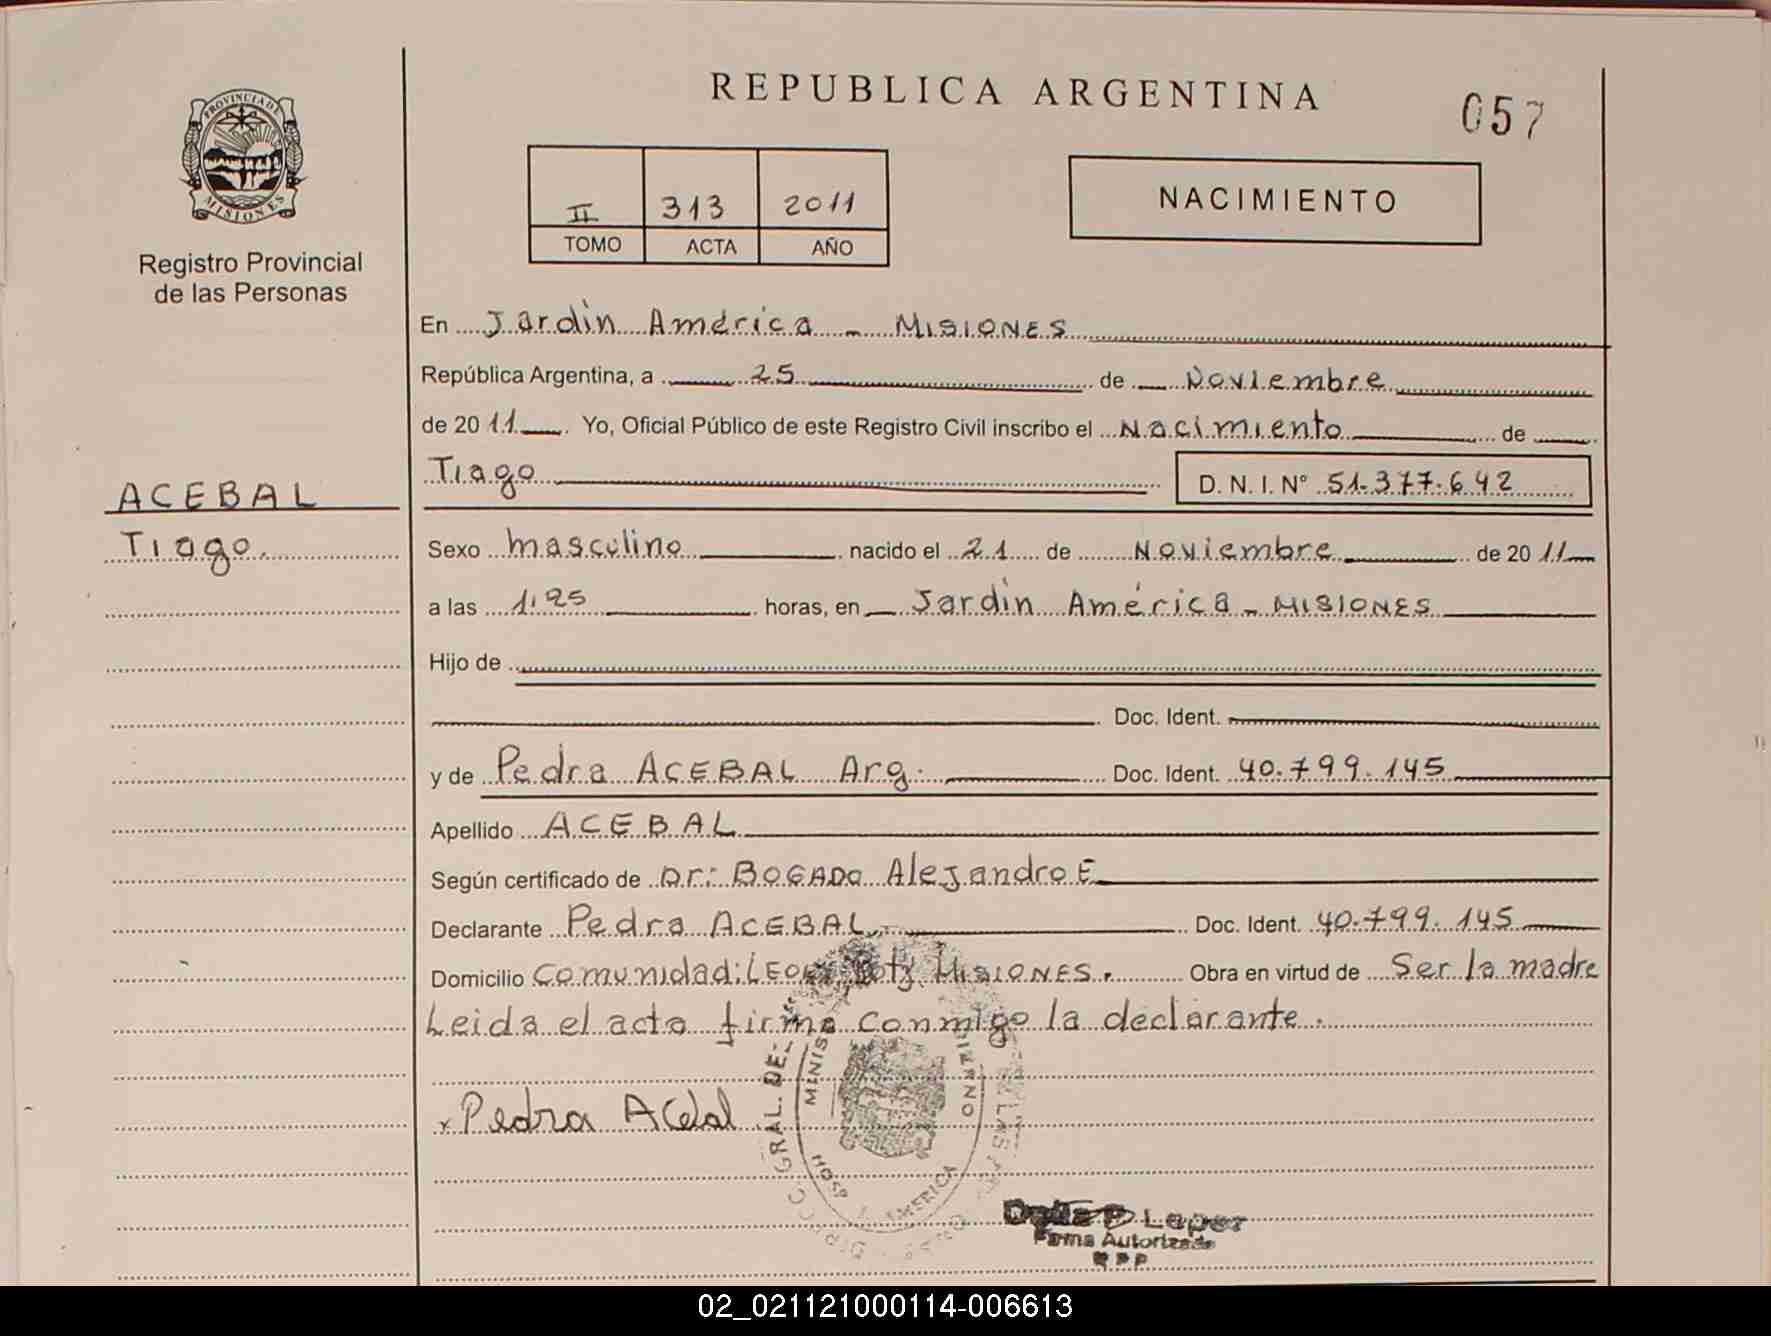 REPUBLICA ARGENTINA
057
PROVINCIA DE
MISIONES
Registro Provincial
de las Personas
II 313 2011
TOMO ACTA AÑO
NACIMIENTO
En Jardin América - MISIONES
República Argentina, a 25 de Noviembre
de 20 11 . Yo, Oficial Público de este Registro Civil inscribo el Nacimiento de
Tiago D. N. I. N° 51.377.642
ACEBAL
Tiago.
Sexo masculino nacido el 21 de Noviembre de 20 11
a las 1:25 horas, en Jardin América - MISIONES
Hijo de
Doc. Ident.
y de Pedra ACEBAL Arg. Doc. Ident. 40.799.145
Apellido ACEBAL
Según certificado de Dr: BOGADO Alejandro E
Declarante Pedra ACEBAL Doc. Ident. 40.799.145
Domicilio Comunidad: Poty MISIONES. Obra en virtud de Ser la madre
Leida el acta firma conmigo la declarante.
x Pedra Acebal
GRAL. DE
MINIS
AMERICA
LAS
Lopez
Firma Autorizada
RPP
02_021121000114-006613